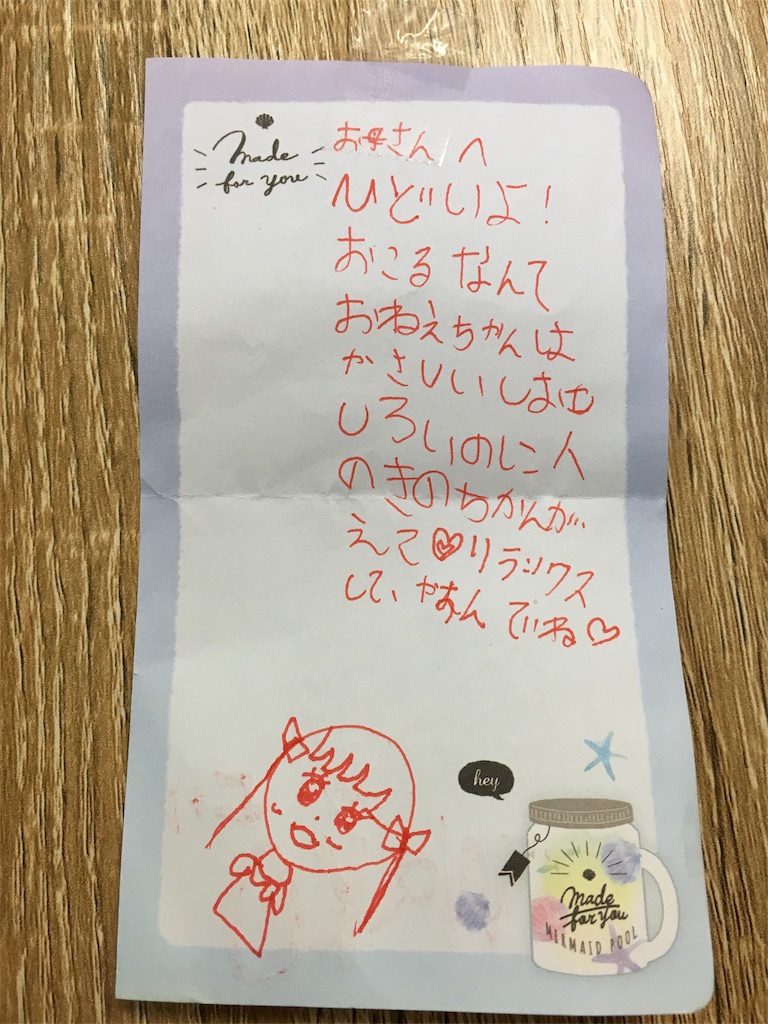 Made
for you
お母さんへ
ひどいよ!
おこるなんて
おねえちゃんは
やさしいしおも
しろいのに人
のきのちかんが
えて♡リラックス
して、やすんでいね♡
hey
Made
for you
MERMAID POOL